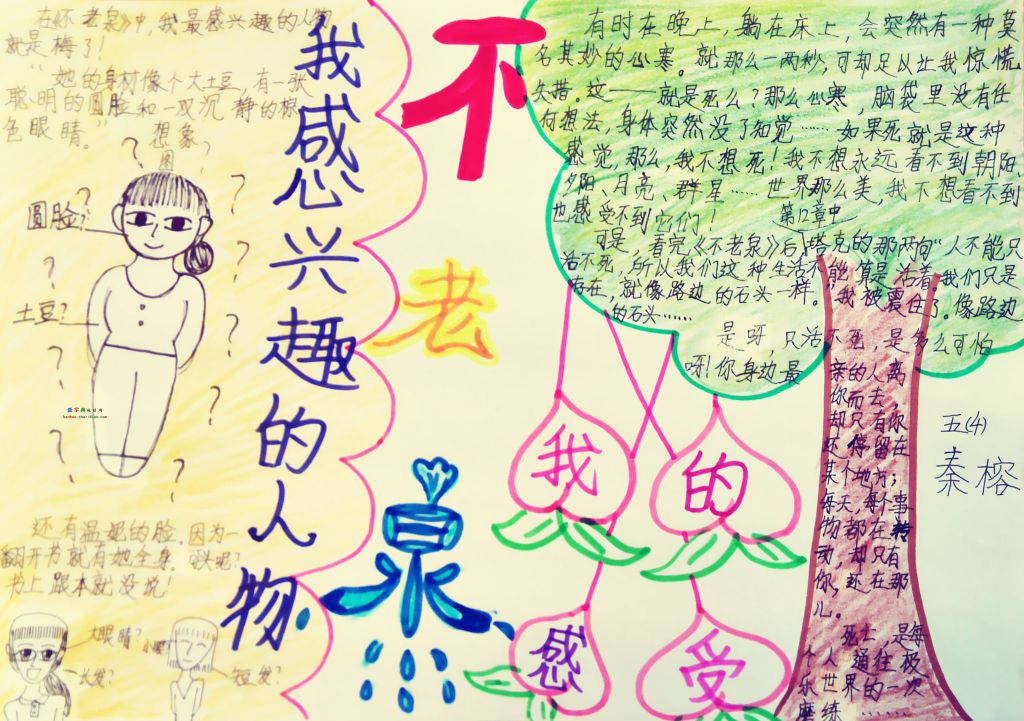 在《不老泉》中,我最感兴趣的人物
就是梅了!
“她的身材像个大土豆,有一张
聪明的圆脸和一双沉静的棕
色眼睛。”
想象
图
圆脸?
土豆?
还有温妮的脸.因为一
翻开书就有她全身.
书上跟本就没说!
大眼睛?
长发?
短发?
我感兴趣的人物.
不
老
泉
有时在晚上,躺在床上,会突然有一种莫
名其妙的心寒。就那么一两秒,可却足以让我惊慌
失措。这——就是死么?那么心寒,脑袋里没有任
何想法,身体突然没了知觉……如果死就是这种
感觉,那么,我不想死!我不想永远看不到朝阳、
夕阳、月亮、群星……世界那么美,我不想看不到
也感受不到它们!
第12章中
可是,看完《不老泉》后,塔克的那两句“人不能只
活不死,所以我们这种生活不能算是活着,我们只是
存在,就像路边的石头一样。”我被震住了。像路边
的石头……
是呀,只活不死,是多么可怕
呀!你身边最
亲的人离
你而去,
却只有你
还停留在
某个地方;
每天,每个事
物都在转
动,却只有
你,还在那
儿。
死亡,是每
个人通往极
乐世界的一次
磨练………
我的
感受
五(4)
秦榕